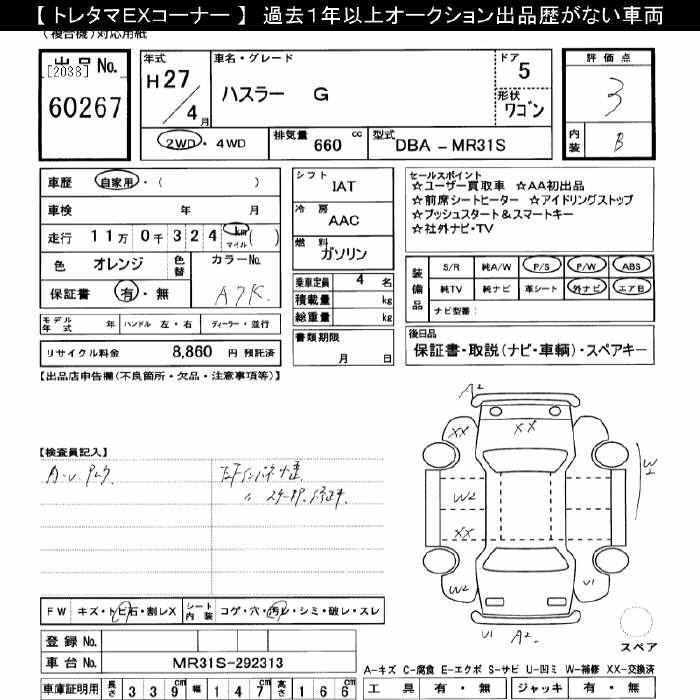 【 トレタマEXコーナー 】 過去1年以上オークション出品歴がない車両
(複合機)対応用紙
出品 No.
[2038]
60267
年式
H27/4月
車名・グレード
ハスラー G
ドア
5
形状
ワゴン
評価点
3
内装
B
2WD・4WD
排気量 660 cc
型式 DBA - MR31S
車歴 自家用・( )
車検 年 月
走行 11万0千324 km マイル ( )
色 オレンジ 色替 カラーNo.
A7K
保証書 有・無
シフト
IAT
冷房
AAC
燃料
ガソリン
乗車定員 4 名
積載量 kg
総重量 kg
書類期限
月 日
セールスポイント
☆ユーザー買取車 ☆AA初出品
☆前席シートヒーター ☆アイドリングストップ
☆プッシュスタート＆スマートキー
☆社外ナビ・TV
装備品
S/R 純A/W P/S P/W ABS
純TV 純ナビ 革シート 外ナビ エアB
ナビ型番：
モデル年式 年 ハンドル 左・右 ディーラー・並行
リサイクル料金 8,860 円 預託済
後日品
保証書・取説(ナビ・車輌)・スペアキー
【出品店申告欄(不良箇所・欠品・注意事項等)】
【検査員記入】
A2
XX
XX
W2
W2
XX
W2
U1
U1
A2
スペア
FW キズ・トビ石・割レX シート内装 コゲ・穴・汚レ・シミ・破レ・スレ
登録 No.
車台 No. MR31S-292313
車庫証明用 長さ 339cm 幅 147cm 高さ 166cm
A-キズ C-腐食 E-エクボ S-サビ U-凹ミ W-補修 XX-交換済
工具 有・無 ジャッキ 有・無